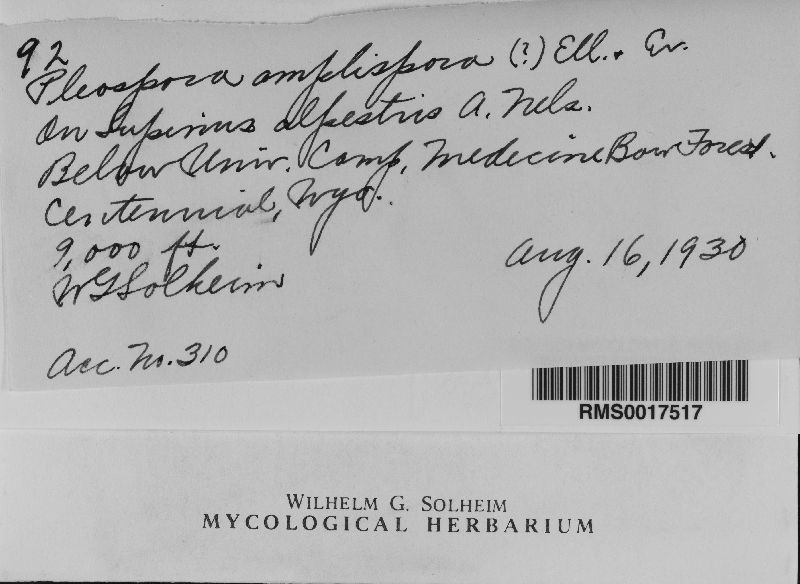 92
Pleospora amplispora (?) Ell. & Ev.
On Lupinus alpestris A. Nels.
Below Univ. Camp, Medicine Bow Forest.
Centennial, Wyo.
9,000 ft.
Aug. 16, 1930
WGSolheim
Acc. No. 310
RMS0017517
WILHELM G. SOLHEIM
MYCOLOGICAL HERBARIUM